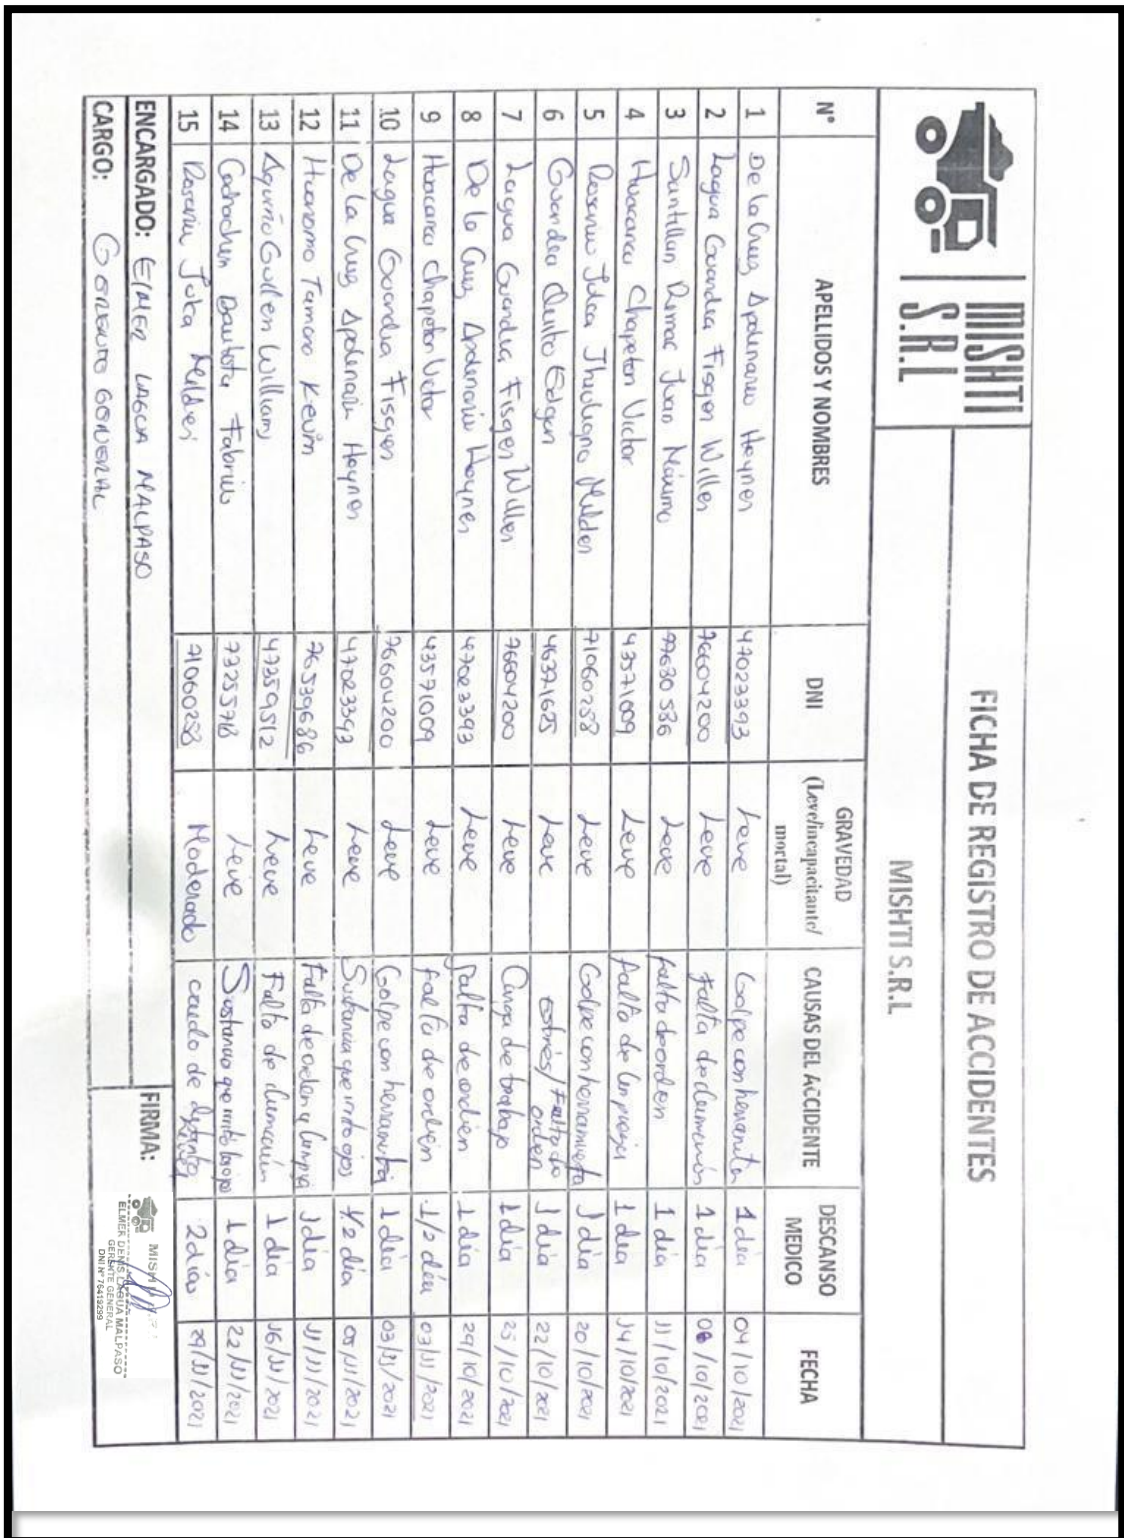 MISHTI
S.R.L
FICHA DE REGISTRO DE ACCIDENTES
MISHTI S.R.L
N° APELLIDOS Y NOMBRES DNI GRAVEDAD (Leve/incapacitante/ mortal) CAUSAS DEL ACCIDENTE DESCANSO MEDICO FECHA
1 De la Cruz Apolenario Hayner 47023393 Leve Golpe con herramienta 1 día 04/10/2021
2 Lagua Guandia Fisger Willer 76604200 Leve Falta de 1 día 08/10/2021
3 Santillan Rimac Juan Máximo 77630586 Leve falta de orden 1 día 11/10/2021
4 Huacarea Chapeton Victor 43571009 Leve falta de limpieza 1 día 14/10/2021
5 Rosario Milder 71060258 Leve Golpe con herramienta 1 día 20/10/2021
6 Guandia Quito Edgar 46371625 Leve estrés/Falta de orden 1 día 22/10/2021
7 Lagua Guandia Fisger Willer 76604200 Leve Carga de trabajo 1 día 25/10/2021
8 De la Cruz Apolenario Hayner 47023393 Leve Falta de orden 1 día 29/10/2021
9 Huacarea Chapeton Victor 43571009 Leve falta de orden 1/2 día 03/11/2021
10 Lagua Guandia Fisger 76604200 Leve Golpe con herramienta 1 día 03/11/2021
11 De la Cruz Apolenario Hayner 47023393 Leve Sustancia que irrito ojos 1/2 día 05/11/2021
12 Huanomo Tamara Kevin 76539686 Leve Falta de orden y limpieza 1 día 11/11/2021
13 Guillen Williams 47359512 Leve Falta de 1 día 16/11/2021
14 Bautista Fabricio 73255718 Leve Sustancia que irritó 1 día 22/11/2021
15 Rosario 71060258 Moderado caida de 2 días 29/11/2021
ENCARGADO: ELMER LAGUA MALPASO FIRMA:
CARGO: GERENTE GENERAL
MISHTI
ELMER DENIS LAGUA MALPASO
GERENTE GENERAL
DNI N° 76419299